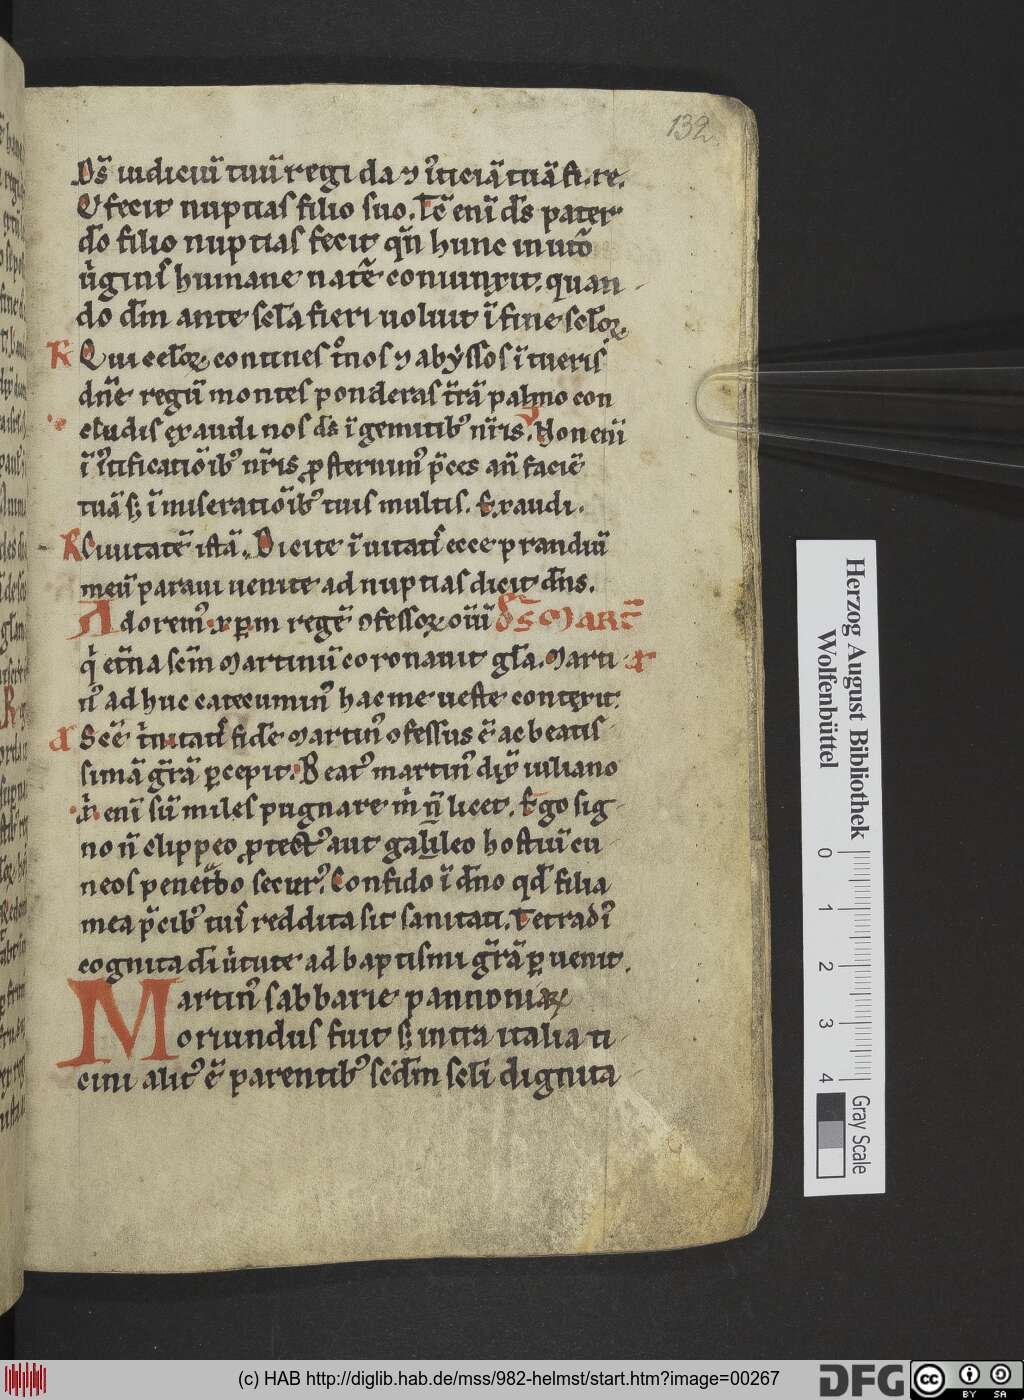 132
Ds̄ iudiciū tuū regi da ⁊ iᷤticiā tuā fi. re.
Qͥ fecit nuptias filio suo. Tc̄ enī ds̄ pater
dō filio nuptias fecit qn̄ hunc in utō
uͥginis humane natē coniunxit. quan
do dm̄ ante scl̄a fieri uoluit ī fine scl̄oꝝ.
R Qui celoꝝ contines tͦnos ⁊ abẏssos ītueris
dn̄e regū montes ponderas tr̄ā palmo con
cludis exaudi nos ds̄ ī gemitibꝫ nr̄is. V Non enī
ī iᷤtificatiōibꝫ nr̄is ꝓsternimꝰ p̄ces an̄ faciē
tuā sꝫ ī miseratiōibꝫ tuis multis. Exaudi.
R Ciuitatē istā. Dicite īuitatis ecce prandiū
meū paraui uenite ad nuptias dicit dn̄s.
Adoremꝰ xp̄m regē ꝯfessoꝝ oīū DS MART
qͥ et̄na scm̄ martinū coronauit gl̄a. Marti A
nꝰ adhuc catecuminꝰ hac me ueste contexit.
A Scē tͥnitatis fidē martinꝰ ꝯfessus ē ac beatis
simā gr̄ā ꝑcepit. Beatꝰ martinꝰ dix̄ iuliano
xͥ enī sū miles pugnare mͥ n̄ licet. Ego sig
no n̄ clippeo ꝓtectꝰ aut galileo hostiū cu
neos penetͣbo securꝰ. Confido ī dn̄o qd̄ filia
mea p̄cibꝫ tuis reddita sit sanitati. Tetradiꝰ
cognita dī uͥtute ad baptismi gr̄ā ꝑuenit.
Martinꝰ sabbarie pannoniaꝝ
oriundus fuit sꝫ intra italia ti
cini alitꝰ ē parentibꝫ scd̄m scl̄i dignita
Herzog August Bibliothek
Wolfenbüttel
0 1 2 3 4
Gray Scale
(c) HAB http://diglib.hab.de/mss/982-helmst/start.htm?image=00267
DFG
cc BY SA